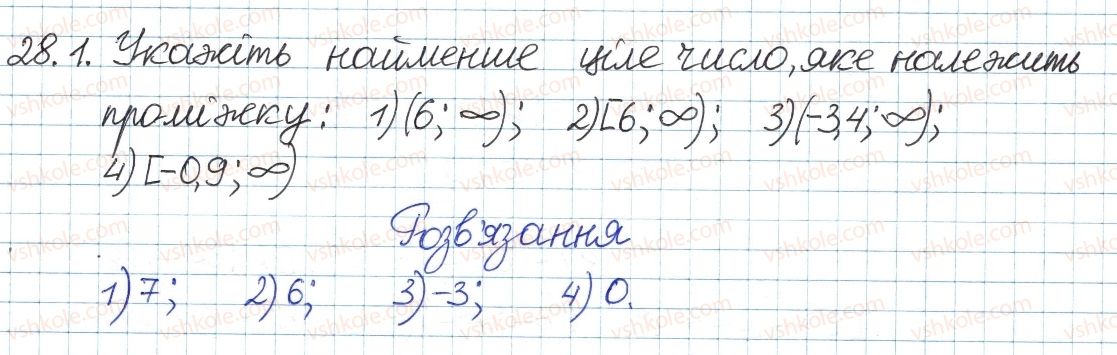 28.1. Укажіть найменше ціле число, яке належить
проміжку: 1) (6; ∞); 2) [6; ∞); 3) (-3,4; ∞);
4) [-0,9; ∞)
Розв'язання
1) 7; 2) 6; 3) -3; 4) 0.